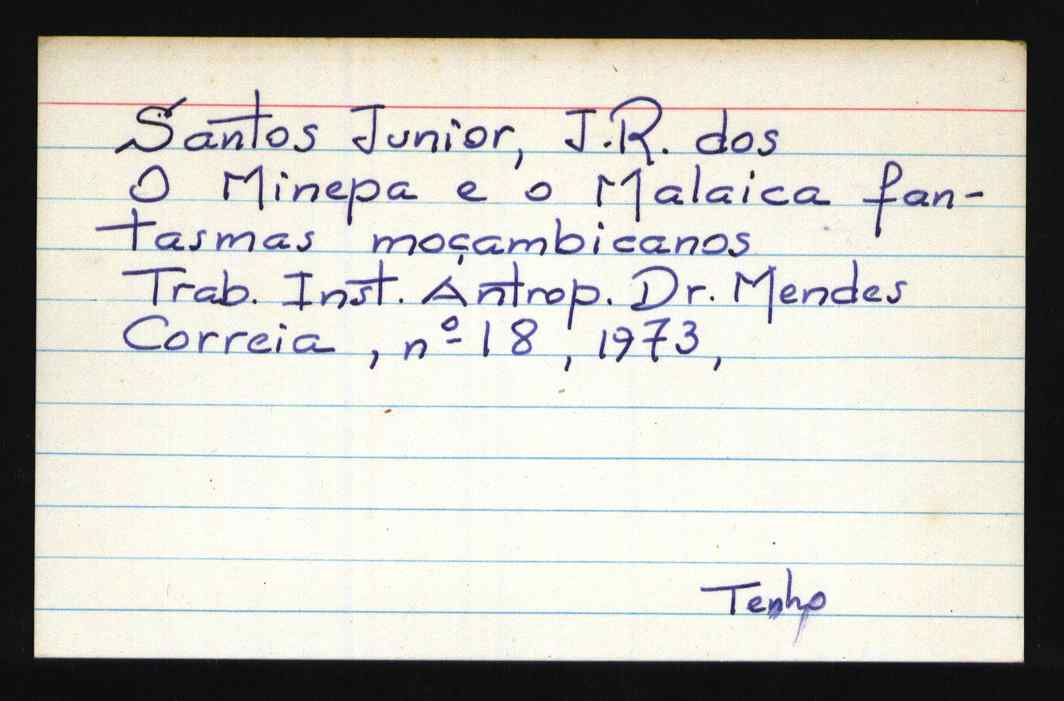 Santos Junior, J.R. dos
O Minepa e o Malaica fan-
tasmas moçambicanos
Trab. Inst. Antrop. Dr. Mendes
Correia, nº 18, 1973,
Tenho